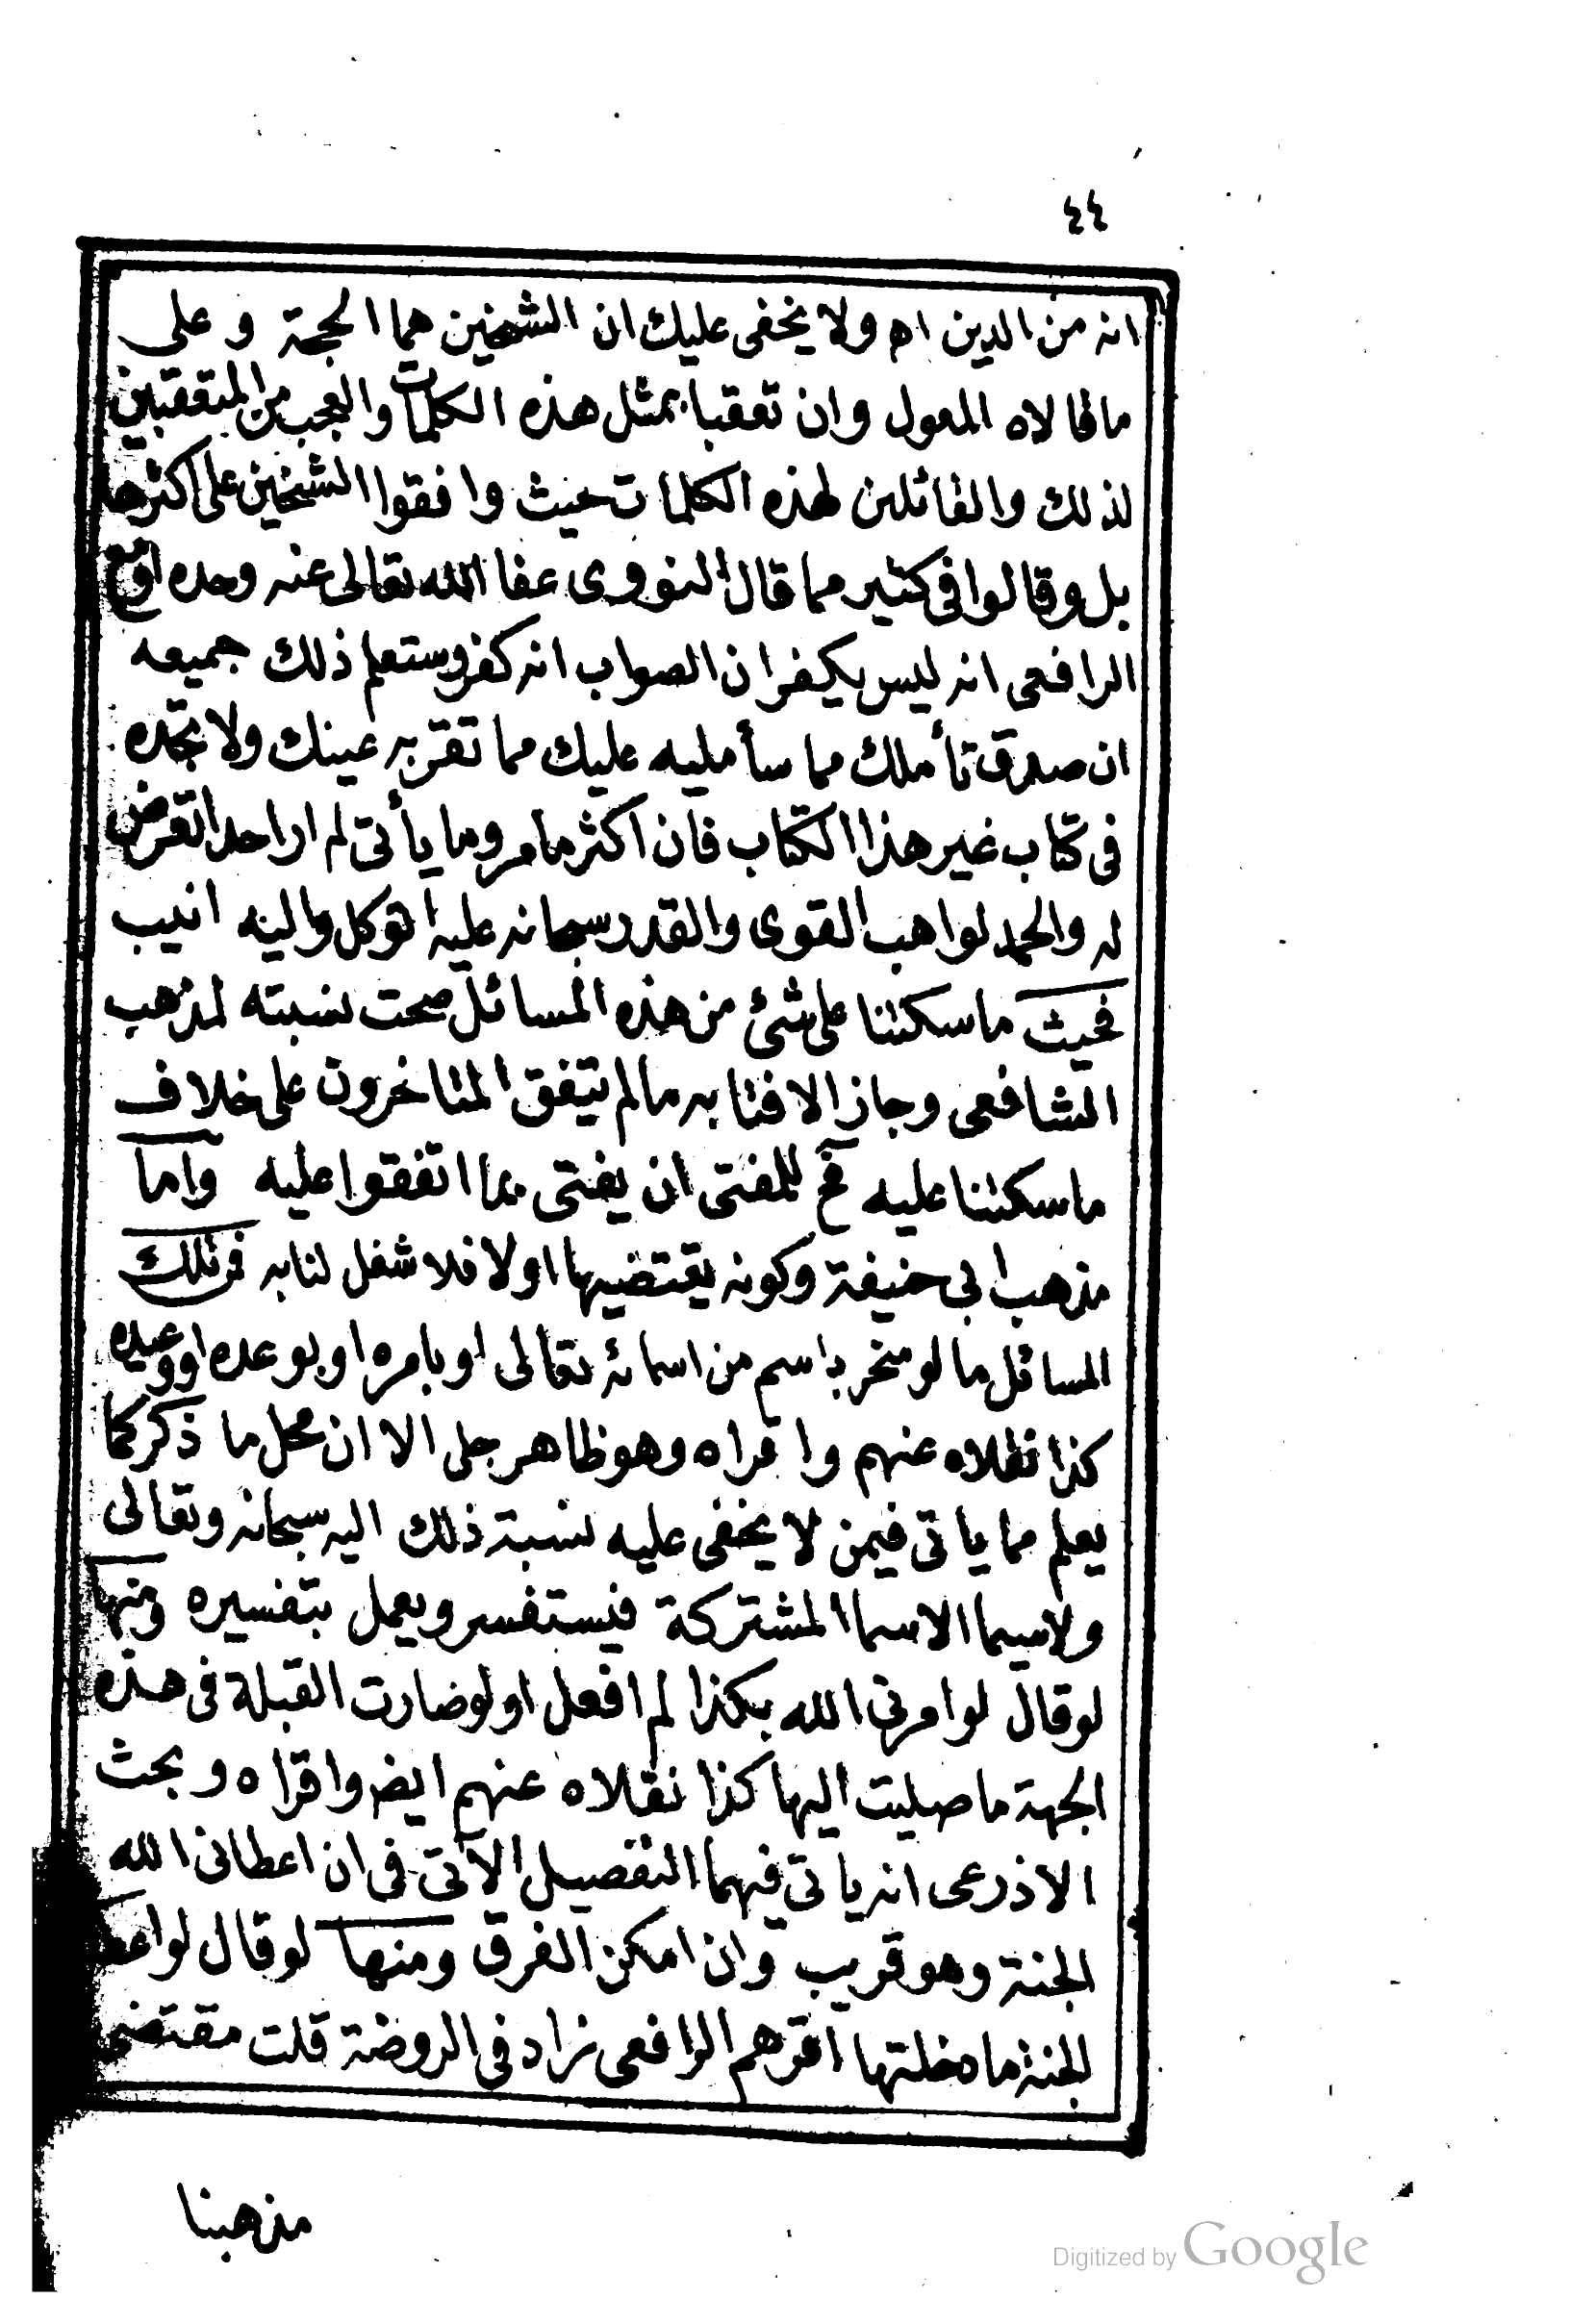 ٤٤
انه من الدين اه ولا يخفى عليك ان الشيخين هما الحجة وعلى
ما قالاه المعول وان تعقبا بمثل هذه الكلمات والعجب من المتعقبين
لذلك والقائلين لهذه الكلمات حيث وافقوا الشيخين على اكثرها
بل وقالوا في كثير مما قال النووى عفا الله تعالى عنه وحده او مع
الرافعى انه ليس بكفر ان الصواب انه كفر وستعلم ذلك جميعه
ان صدق تأملك مما سأمليه عليك مما تقر به عينك ولا تجده
فى كتاب غير هذا الكتاب فان اكثر ما مر وما يأتى لم ار احدا تعرض
له والحمد لواهب القوى والقدر سبحانه عليه اتوكل واليه انيب
فحيث ما سكتنا على شئ من هذه المسائل صحت نسبته لمذهب
الشافعى وجاز الافتا به ما لم يتفق المتاخرون على خلاف
ما سكتنا عليه فح للمفتى ان يفتى بما اتفقوا عليه واما
مذهب ابى حنيفة وكونه يقتضيها اولا فلا شغل لنا به فمن تلك
المسائل ما لو سخر باسم من اسمائه تعالى او بامره او بوعده او وعيده
كذا نقلاه عنهم واقراه وهو ظاهر جلى الا ان محل ما ذكر كما
يعلم مما ياتى فيمن لا يخفى عليه نسبة ذلك اليه سبحانه وتعالى
ولاسيما الاسما المشتركة فيستفسر ويعمل بتفسيره ومنها
لو قال لو امرنى الله بكذا لم افعل او لو صارت القبلة فى هذه
الجهة ما صليت اليها كذا نقلاه عنهم ايض واقراه وبحث
الاذرعى انه ياتى فيهما التفصيل الآتى فى ان اعطانى الله
الجنة وهو قريب وان امكن الفرق ومنها لو قال لو
الجنة ما دخلتها اقرهم الرافعى زاد فى الروضة قلت مقتضى
مذهبنا
Digitized by Google